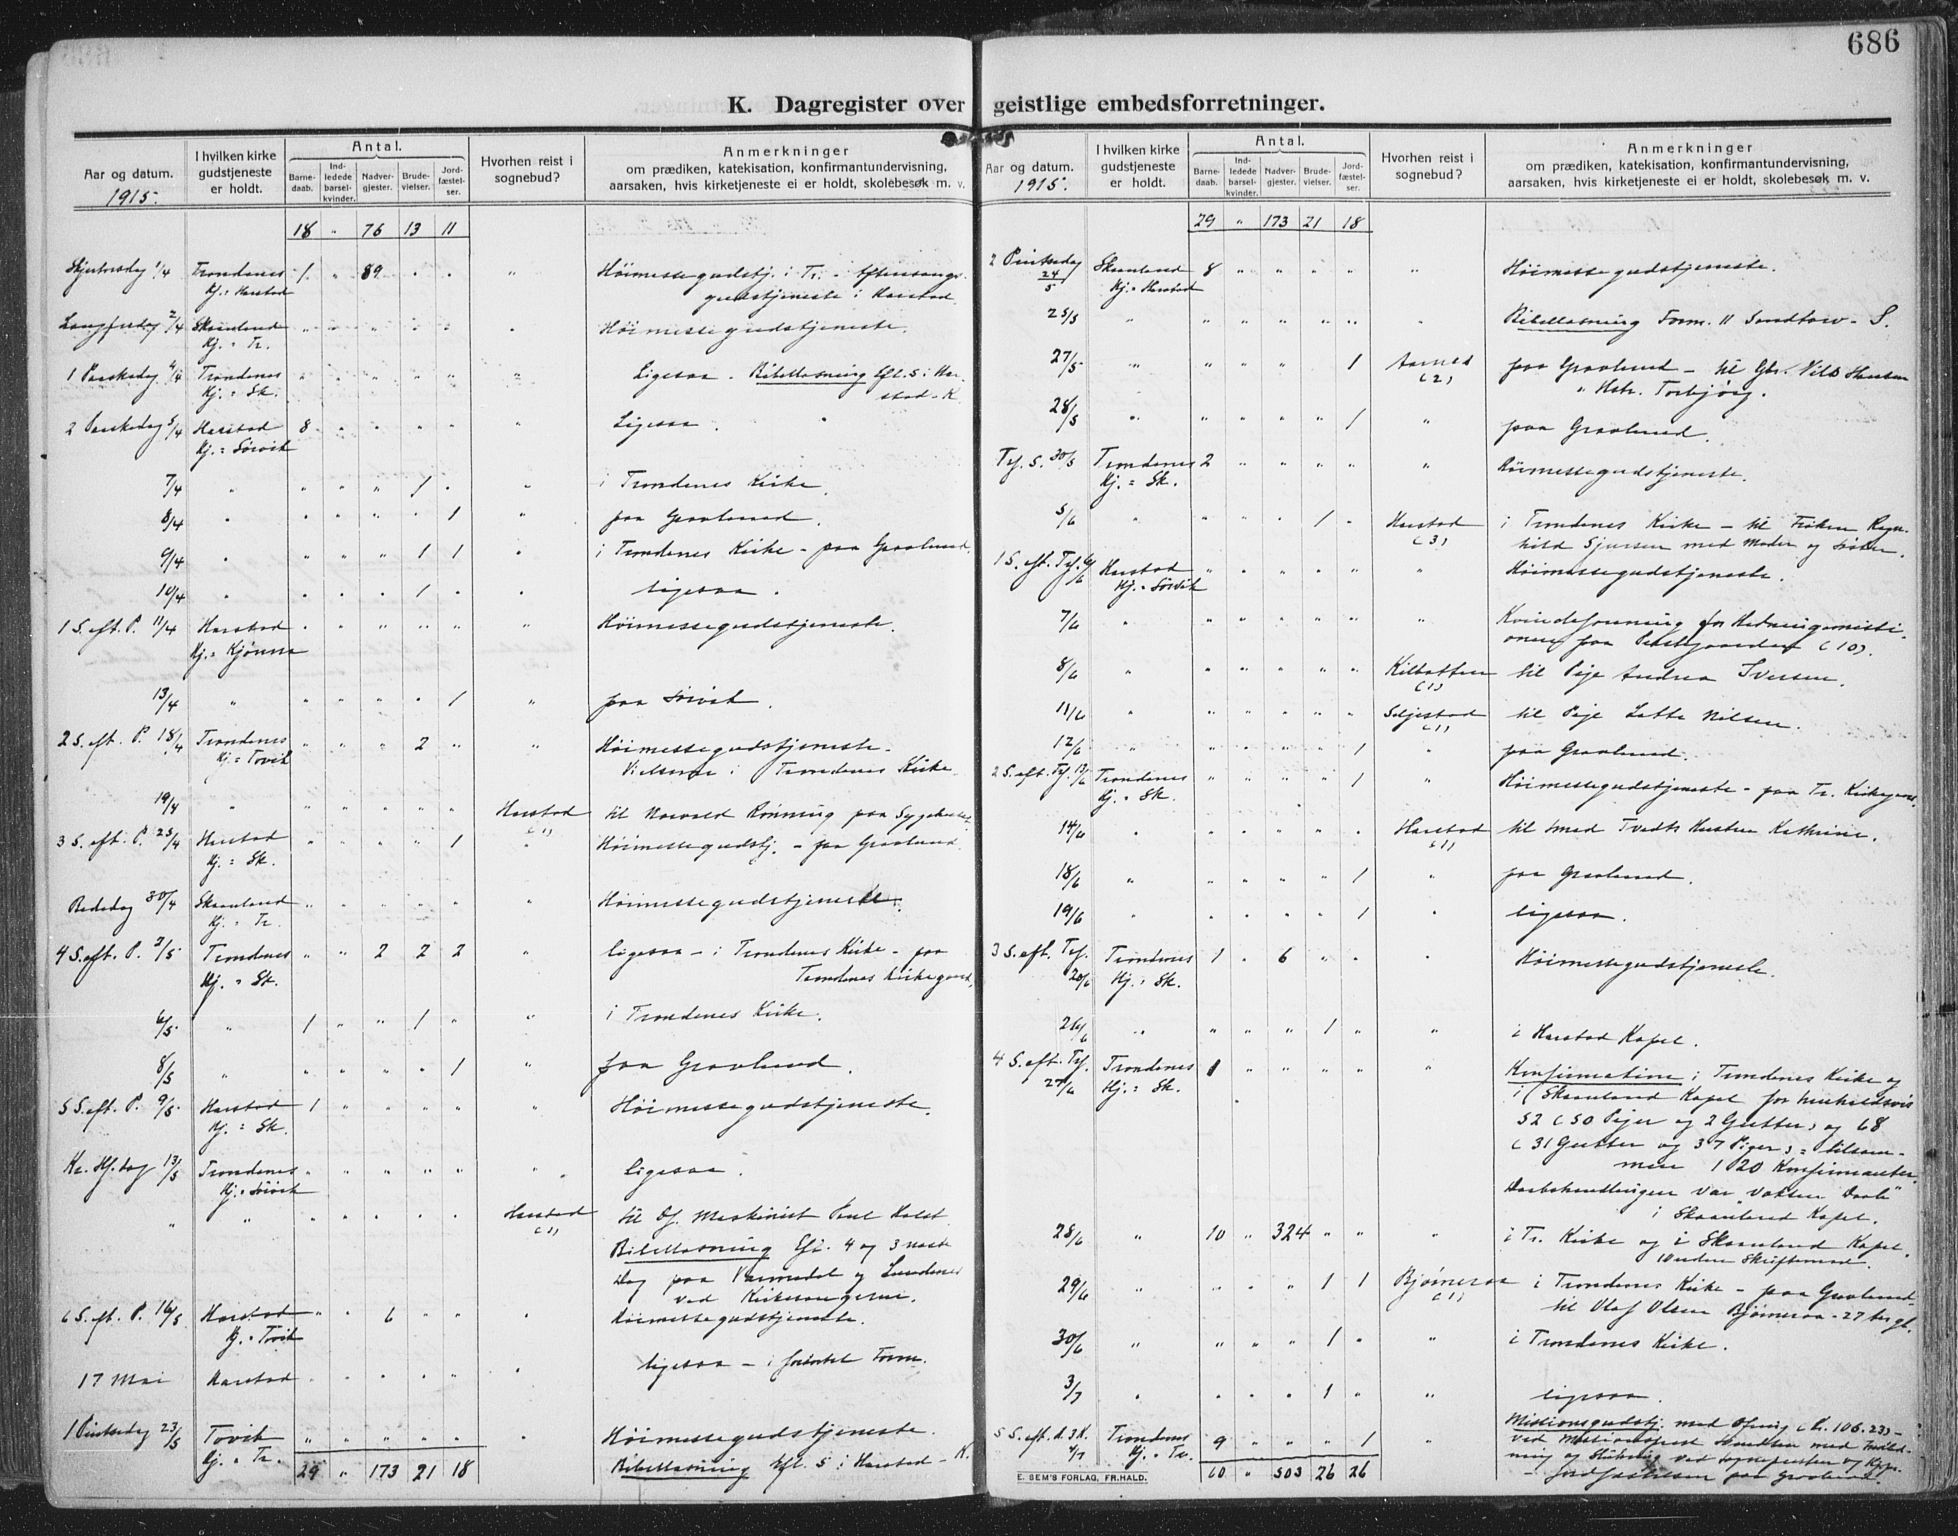 686
K. Dagregister over geistlige embedsforretninger.
Aar og datum.
1915.
I hvilken kirke gudstjeneste er holdt.
Antal.
Barnedaab.
Indledede barselkvinder.
Nadvergjester.
Brudevielser.
Jordfæstelser.
Hvorhen reist i sognebud?
Anmerkninger
om prædiken, katekisation, konfirmantundervisning,
aarsaken, hvis kirketjeneste ei er holdt, skolebesøk m. v.
18 " 76 13 11
Skjærtorsdag 1/4 Trondenes 1 " 89 " " " Høimessegudstj. i Tr. - Aftensangs-
Kj. = Harstad gudstjeneste i Harstad.
Langfredag 2/4 Skaanland " " " " " " Høimessegudstjeneste.
Kj. = Tr.
1 Paaskedag 4/4 Trondenes " " " " " " Ligesaa. Bibellæsning Eft. 5 i Har-
Kj. = Sk. stad - K.
2 Paaskedag 5/4 Harstad 8 " " " " " Ligesaa.
Kj. = Sørvik
7/4 " " " " 1 " " i Trondenes Kirke.
8/4 " " " " " 1 " paa Gravlund.
9/4 " " " " 1 1 " i Trondenes Kirke - paa Gravlund.
10/4 " " " " 1 " " ligesaa.
1 S. eft. P. 11/4 Harstad " " " " " " Høimessegudstjeneste.
Kj. = Kjønna
13/4 " " " " " 1 " paa Sørvik.
2 S. eft. P. 18/4 Trondenes " " " 2 " " Høimessegudstjeneste.
Kj. = Tovik Vielserne i Trondenes Kirke.
19/4 " " " " " " Harstad til Rønning paa Sygehuset.
(1)
3 S. eft. P. 25/4 Harstad " " " " 1 " Høimessegudstj. - paa Gravlund.
Kj. = Sk.
Bededag 30/4 Skaanland " " " " " " Høimessegudstjeneste.
Kj. = Tr.
4 S. eft. P. 2/5 Trondenes " " 2 2 2 " ligesaa - i Trondenes Kirke - paa
Kj. = Sk. Trondenes Kirkegaard.
6/5 " 1 " " 1 " " i Trondenes Kirke.
8/5 " " " " " 1 " paa Gravlund.
5 S. eft. P. 9/5 Harstad 1 " " " " " Høimessegudstjeneste.
Kj. = Sk.
Kr. Hf. dag 13/5 Trondenes " " " " " " ligesaa.
Kj. = Sørvik
" " " " " " " Harstad til Maskinist Holst
(1)
Bibellæsning Eft. 4 og 3 næste
Dag paa og Lundenes
ved Kirkesangerne.
6 S. eft. P. 16/5 Harstad " " 6 " " " Høimessegudstjeneste.
Kj. = Tovik
17 Mai Harstad " " " " " " ligesaa - i Form.
1 Pintsedag 23/5 Tovik " " " " " " Høimessegudstjeneste.
Kj. = Tr. 29 " 173 21 18 Bibellæsning Eft. 5 i Harstad - K.
Aar og datum.
1915.
I hvilken kirke gudstjeneste er holdt.
Antal.
Barnedaab.
Indledede barselkvinder.
Nadvergjester.
Brudevielser.
Jordfæstelser.
Hvorhen reist i sognebud?
Anmerkninger
om prædiken, katekisation, konfirmantundervisning,
aarsaken, hvis kirketjeneste ei er holdt, skolebesøk m. v.
29 " 173 21 18
2 Pintsedag 24/5 Skaanland 8 " " " " " Høimessegudstjeneste.
Kj. = Harstad
25/5 " " " " " " " Bibellæsning Form. 11 Sandtorv - S.
27/5 " " " " " 1 Aarnes paa Gravlund - til Hansen
(2) " Torbjørg.
28/5 " " " " " 1 " paa Gravlund.
Tf. S. 30/5 Trondenes 2 " " " " " Høimessegudstjeneste.
Kj. = Sk.
5/6 " " " " 1 " Harstad i Trondenes Kirke - til Frøken Ragn-
(3) hild Sjursen med Moder og Søster.
1 S. eft. Tf. 6/6 Harstad " " " " " " Høimessegudstjeneste.
Kj. = Sørvik
7/6 " " " " " " " Kvindeforening for Hedningemissi-
onen paa Prestgaarden (10).
8/6 " " " " " " Kilbotten til Pige Andrea Iversen.
(1)
11/6 " " " " " " Seljestad til Pige Lotte Nilsen.
(1)
12/6 " " " " " 1 " paa Gravlund.
2 S. eft. Tf. 13/6 Trondenes " " " " 1 " Høimessegudstjeneste - paa Tr. Kirkegaard.
Kj. = Sk.
14/6 " " " " " " Harstad til Smed Tvedts Hustru Kathrine.
(1)
18/6 " " " " " 1 " paa Gravlund.
19/6 " " " " " 1 " ligesaa.
3 S. eft. Tf. 20/6 Trondenes 1 " 6 " " " Høimessegudstjeneste.
Kj. = Sk.
26/6 " " " " 1 " " i Harstad Kapel.
4 S. eft. Tf. 27/6 Trondenes 1 " " " " " Konfirmation i Trondenes Kirke og
Kj. = Sk. i Skaanland Kapel for henholdsvis
52 (50 Piger og 2 Gutter) og 68
(31 Gutter og 37 Piger) = tilsam-
men 120 Konfirmanter.
Daabshandlingen var "voksen Daab"
i Skaanland Kapel.
28/6 " 10 " 324 " " " i Tr. Kirke og i Skaanland Kapel.
Uden Skriftemaal.
29/6 " " " " 1 1 Bjørneraa i Trondenes Kirke - paa Gravlund-
(1) til Olaf Olsen Bjørneraa - 27
30/6 " " " " 1 " " i Trondenes Kirke.
3/7 " " " " 1 " " ligesaa.
5 S. eft. 4/7 Trondenes 9 " " " 1 " Missionsgudstj. med Ofring (kr. 106.23) -
Kj. = Tr. ved Missionsprest med
og ved Sognepresten og
60 " 503 26 26 - Jordfæstelsen paa Gravlund.
E. SEM'S FORLAG, FR.HALD.